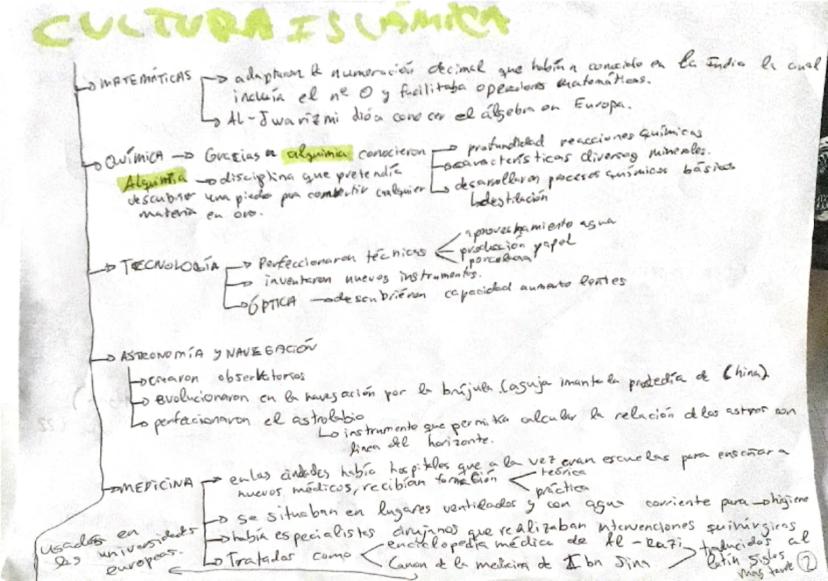 CULTURA ISLÁMICA
MATEMÁTICAS → adaptaron la numeración decimal que habían conocido en la India la cual
incluía el nº 0 y facilitaba operaciones matemáticas.
Al-Jwarizmi dió a conocer el álgebra en Europa.
QUÍMICA → Gracias a alquimia conocieron → profundidad reacciones químicas
características diversos minerales.
desarrollaron procesos químicos básicos
destilación
Alquimia → disciplina que pretendía
descubrir una piedra para convertir cualquier
materia en oro.
TECNOLOGÍA → Perfeccionaron técnicas
aprovechamiento agua
producción papel
porcelana
inventaron nuevos instrumentos.
ÓPTICA → descubrieron capacidad aumento lentes
ASTRONOMÍA Y NAVEGACIÓN
crearon observatorios
evolucionaron en la navegación por la brújula (aguja imantada procedía de China).
perfeccionaron el astrolabio
instrumento que permitía calcular la relación de los astros con
línea del horizonte.
MEDICINA → en las ciudades había hospitales que a la vez eran escuelas para enseñar a
nuevos médicos, recibían formación
teórica
práctica
se situaban en lugares ventilados y con agua corriente para → higiene
había especialistas cirujanos que realizaban intervenciones quirúrgicas
Tratados como
enciclopedia médica de Al-Razi
Canon de la medicina de Ibn Sina
traducidos al
latín siglos
más tarde
usados en
las universidades
europeas.
2